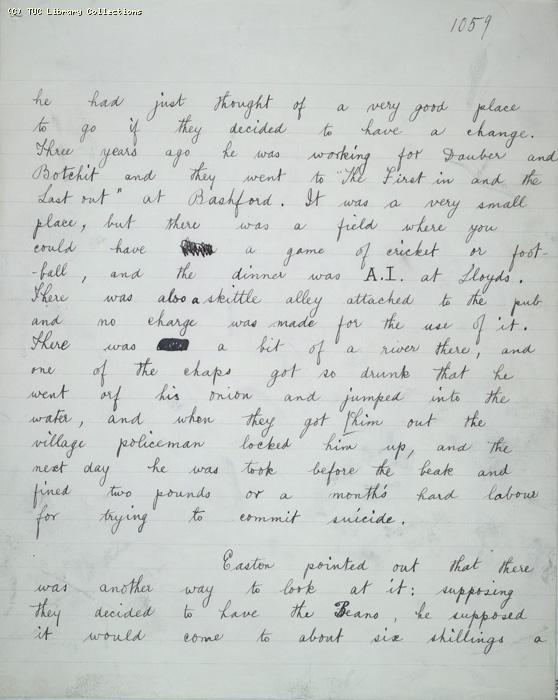 (C) TUC Library Collections
1059
he had just thought of a very good place
to go if they decided to have a change.
Three years ago he was working for Dauber and
Botchit and they went to "The First in and the
Last out" at Bashford. It was a very small
place, but there was a field where you
could have a game of cricket or foot-
-ball, and the dinner was A.I. at Lloyds.
There was also a skittle alley attached to the pub
and no charge was made for the use of it.
There was a bit of a river there, and
one of the chaps got so drunk that he
went orf his onion and jumped into the
water, and when they got him out the
village policeman locked him up, and the
next day he was took before the beak and
fined two pounds or a month's hard labour
for trying to commit suicide.
Easton pointed out that there
was another way to look at it: supposing
they decided to have the Beano, he supposed
it would come to about six shillings a